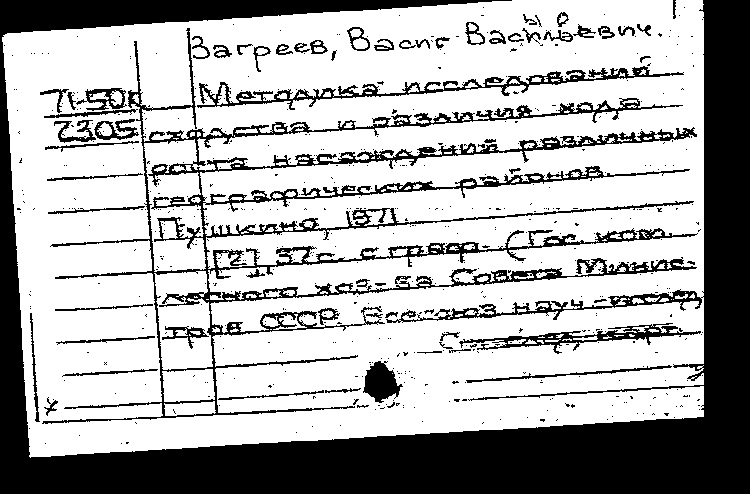 Загреев, Васил Васильевич.
71-50к Методика исследований
2305 сходства и различия хода
роста насаждений различных
географических районов.
Пушкино, 1971.
[2], 37 с. с граф. (Гос. ком.
лесного хоз-ва Совета Минис-
тров СССР, Всесоюз науч-исслед
См. след. карт.